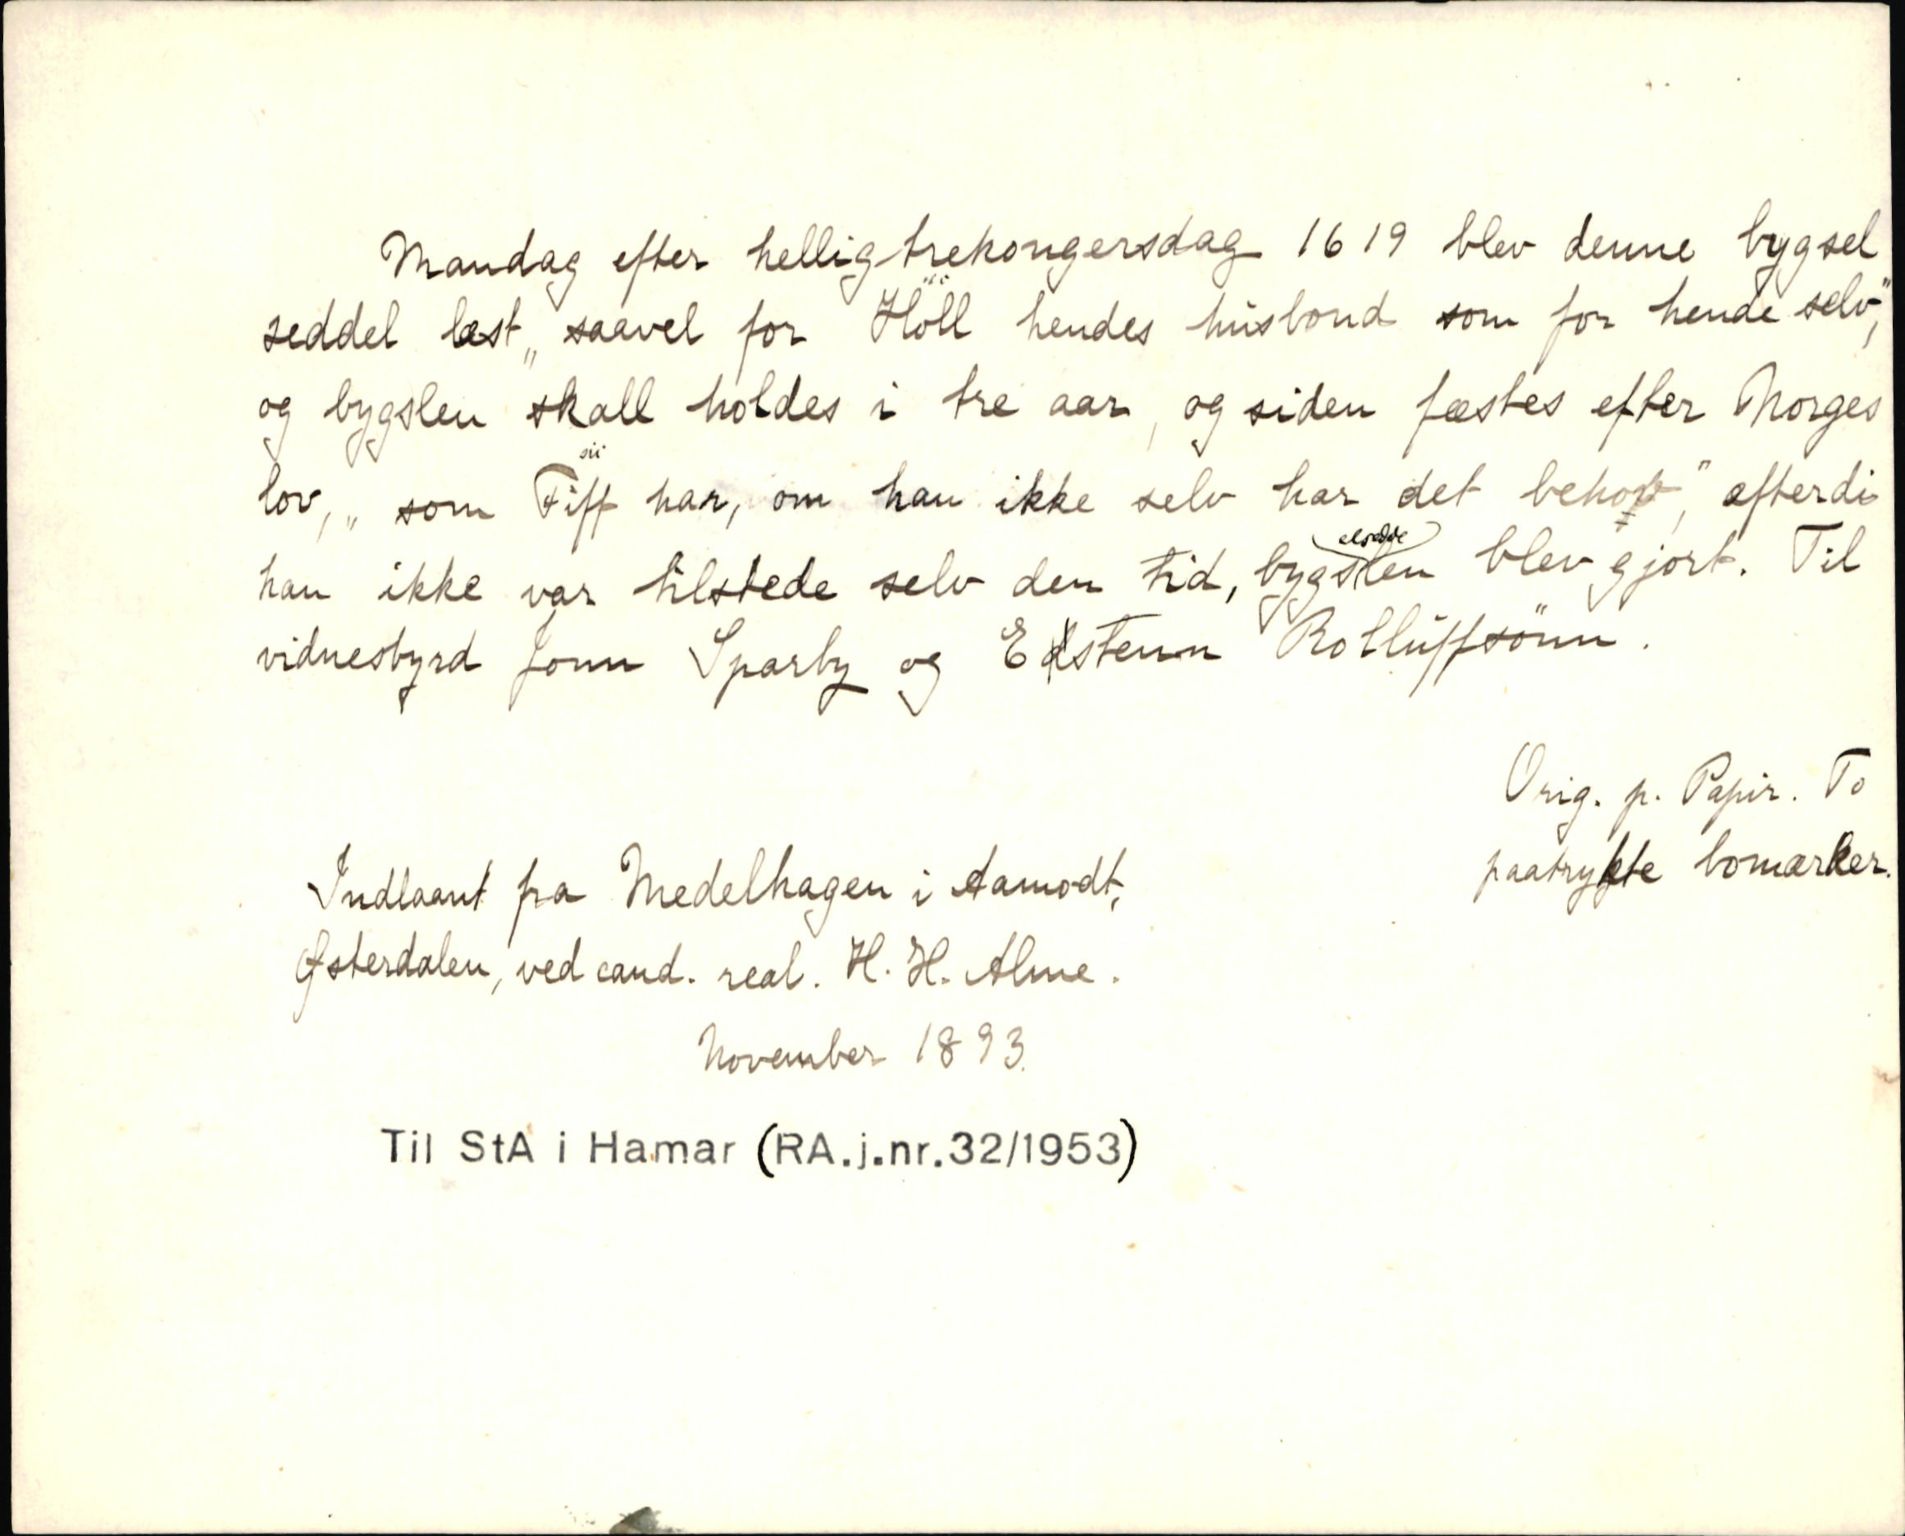 Mandag efter helligtrekongersdag 1619 blev denne bygsel
seddel læst „saavel for Höll hendes husbond som for hende selv",
og bygslen skall holdes i tre aar, og siden fæstes efter Norges
lov, „som Fiff har, om han ikke selv har det behov", efterdi
han ikke var tilstede selv den tid, bygslen blev gjort. Til
vidnesbyrd Jonn Sparby og Estenn Rolluffsönn.
Orig. p. Papir. To
paatrykte bomærker.
Indlaant fra Medelhagen i Aamodt,
Østerdalen, ved cand. real. H. H. Alme.
November 1893.
Til StA i Hamar (RA.j.nr.32/1953)